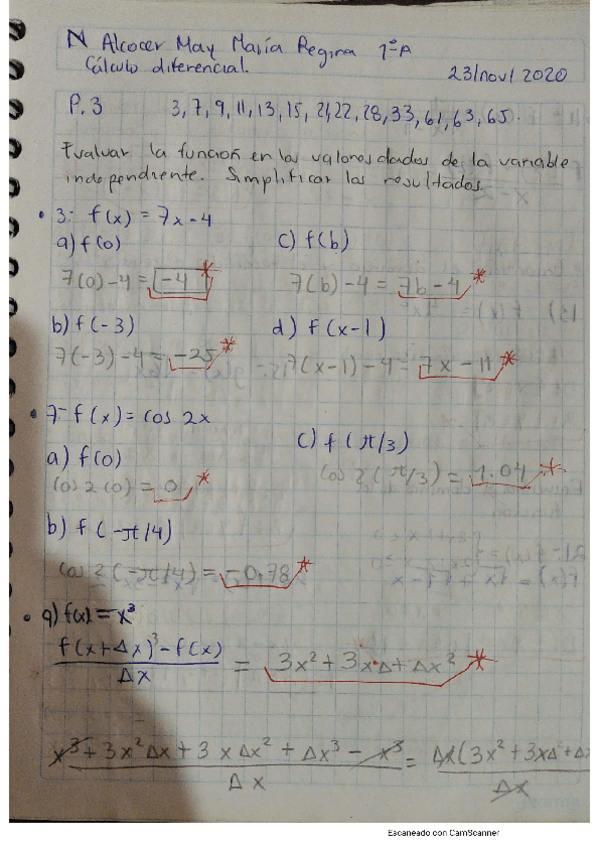 N Alcocer May María Regina 1ºA
Cálculo diferencial.
23/nov/2020
P.3 3, 7, 9, 11, 13, 15, 21, 22, 28, 33, 61, 63, 65.
Evaluar la función en los valores dados de la variable
independiente. Simplificar los resultados.
• 3.- f(x) = 7x-4
a) f(0) c) f(b)
7(0)-4 = -4 * 7(b)-4 = 7b-4 *
b) f(-3) d) f(x-1)
7(-3)-4 = -25 * 7(x-1)-4 = 7x-11 *
• 7.- f(x) = cos 2x
a) f(0) c) f(π/3)
cos 2(0) = 0 * cos 2(π/3) = 1.04 *
b) f(-π/4)
cos 2(-π/4) = -0.78 *
• 9) f(x) = x³
f(x+Δx)³-f(x)
Δx
= 3x²+3xΔ+Δx² *
x³+3x²Δx+3xΔx²+Δx³-x³ = Δx(3x²+3xΔ+Δx
Δx Δx
Escaneado con CamScanner